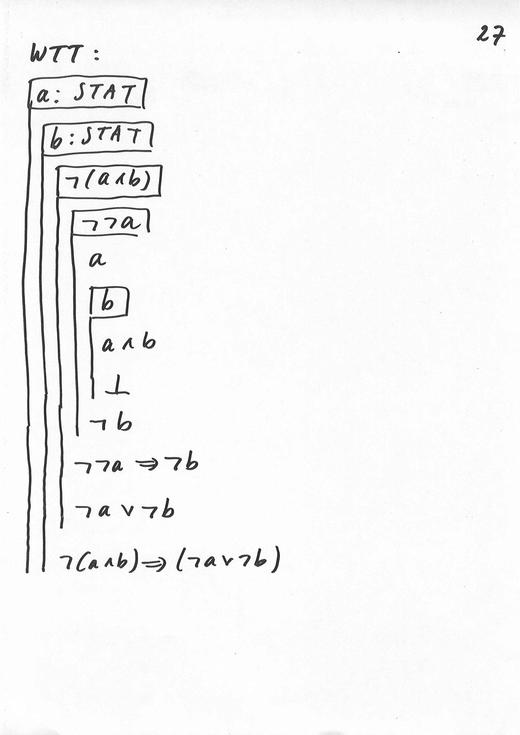 27
WTT:
a: STAT
b: STAT
¬(a∧b)
¬¬a
a
b
a∧b
⊥
¬b
¬¬a ⇒ ¬b
¬a ∨ ¬b
¬(a∧b) ⇒ (¬a∨¬b)